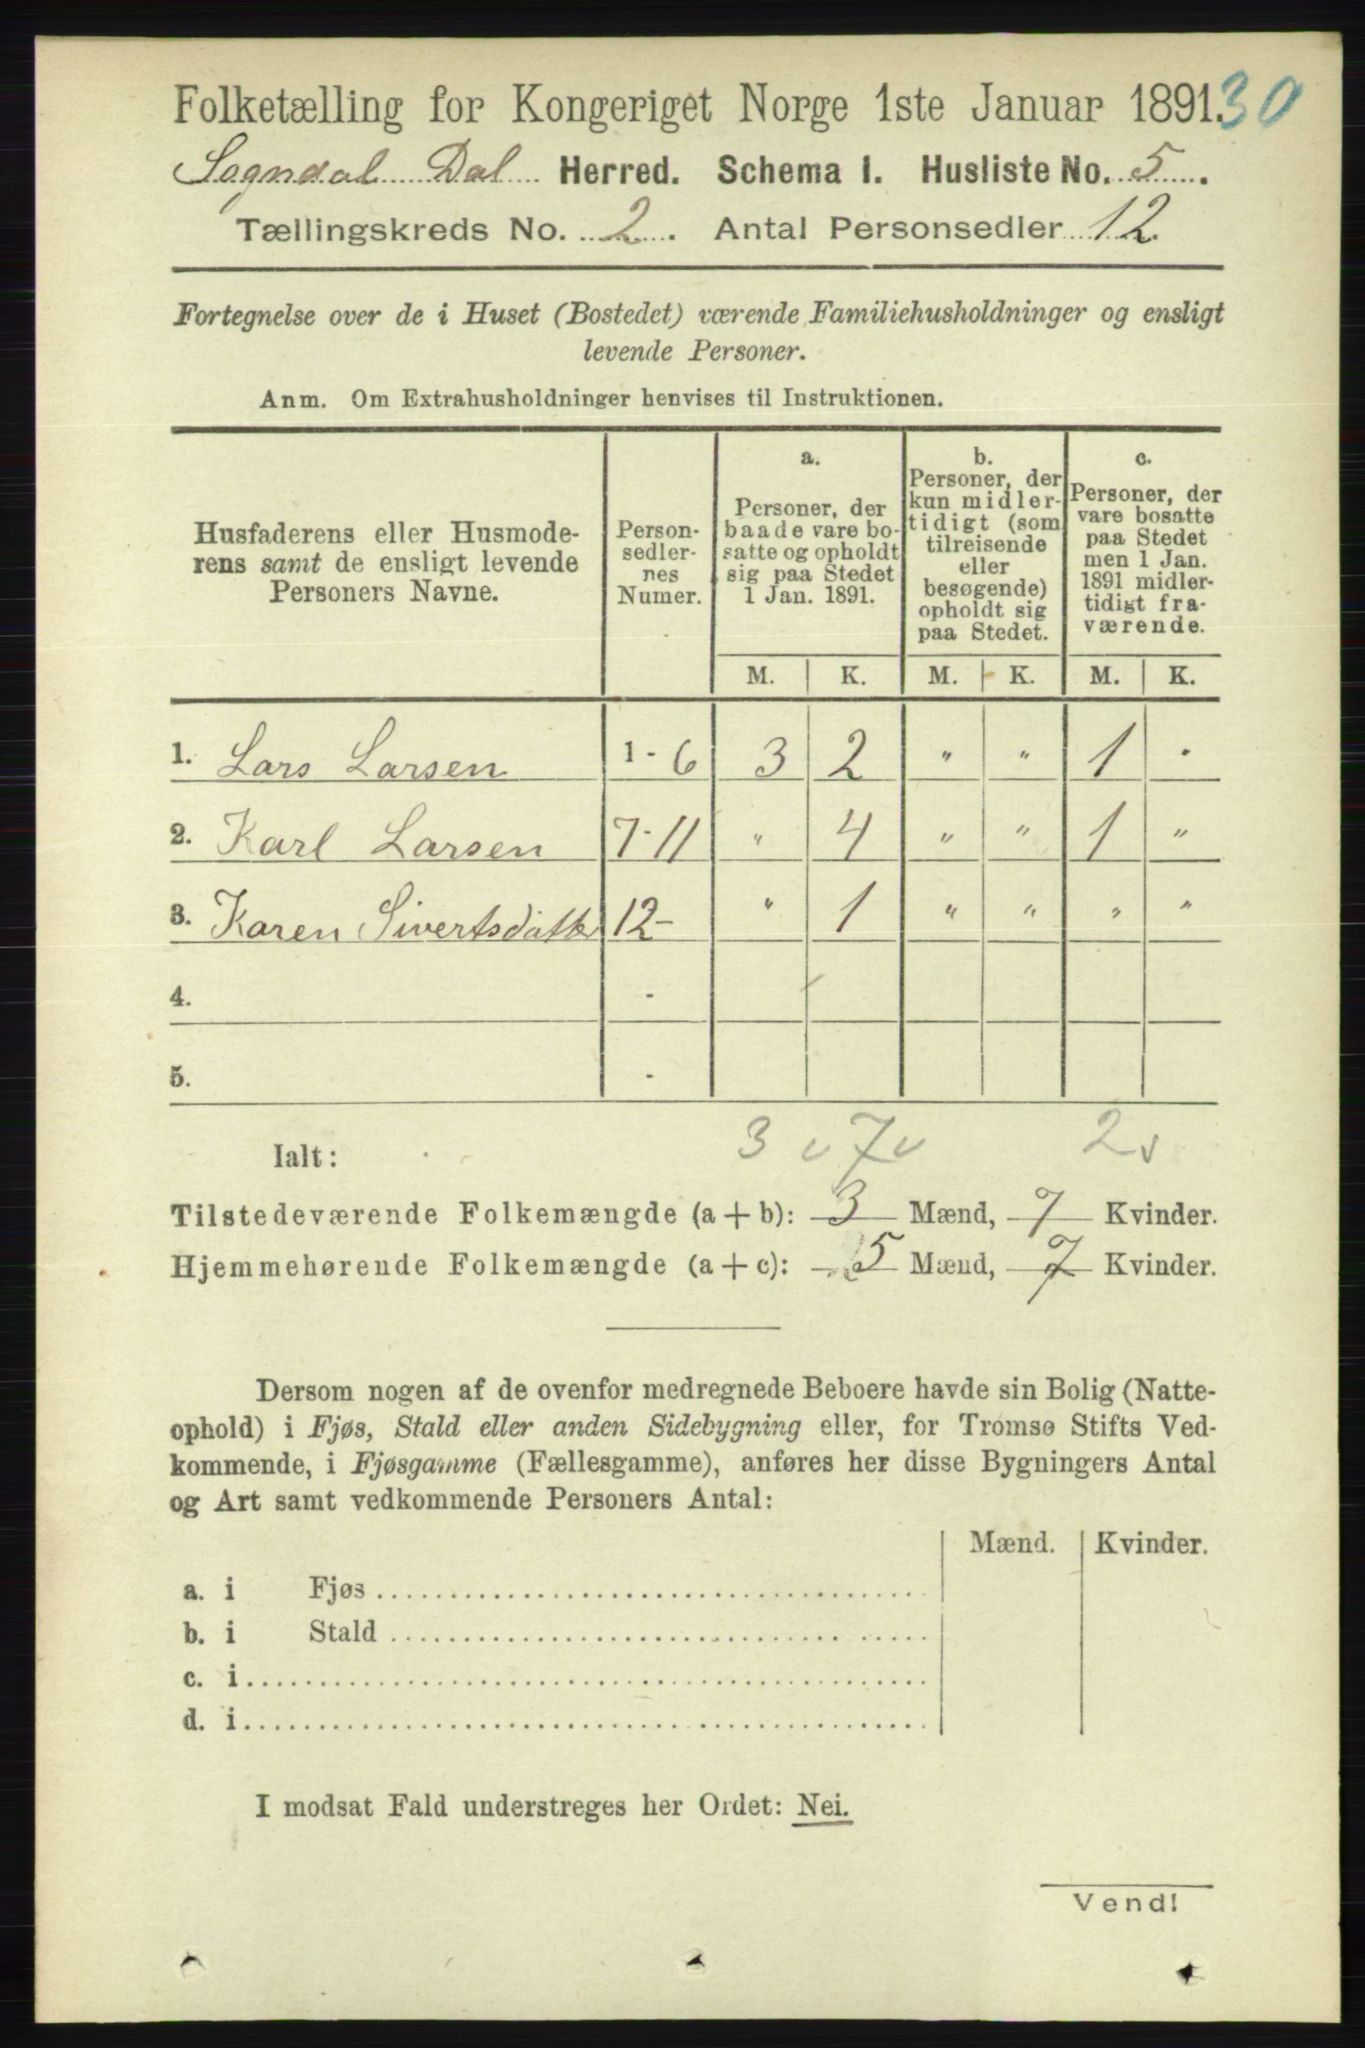 Folketælling for Kongeriget Norge 1ste Januar 1891. 30
Sogndal Dal Herred. Schema I. Husliste No. 5.
Tællingskreds No. 2. Antal Personsedler 12.
Fortegnelse over de i Huset (Bostedet) værende Familiehusholdninger og ensligt
levende Personer.
Anm. Om Extrahusholdninger henvises til Instruktionen.
Husfaderens eller Husmode-
rens samt de ensligt levende
Personers Navne.
Person-
sedler-
nes
Numer.
a.
Personer, der
baade vare bo-
satte og opholdt
sig paa Stedet
1 Jan. 1891.
b.
Personer, der
kun midler-
tidigt (som
tilreisende
eller
besøgende)
opholdt sig
paa Stedet.
c.
Personer, der
vare bosatte
paa Stedet
men 1 Jan.
1891 midler-
tidigt fra-
værende.
M. K. M. K. M. K.
1. Lars Larsen 1-6 3 2 " " 1 "
2. Karl Larsen 7-11 " 4 " " 1 "
3. Karen Sivertsdatter 12- " 1 " " " "
4. -
5. -
Ialt: 3 v 7 v 2 v
Tilstedeværende Folkemængde (a + b): 3 Mænd, 7 Kvinder.
Hjemmehørende Folkemængde (a + c): 5 Mænd, 7 Kvinder.
Dersom nogen af de ovenfor medregnede Beboere havde sin Bolig (Natte-
ophold) i Fjøs, Stald eller anden Sidebygning eller, for Tromsø Stifts Ved-
kommende, i Fjøsgamme (Fællesgamme), anføres her disse Bygningers Antal
og Art samt vedkommende Personers Antal:
Mænd. Kvinder.
a. i Fjøs
b. i Stald
c. i
d. i
I modsat Fald understreges her Ordet: Nei.
Vend!